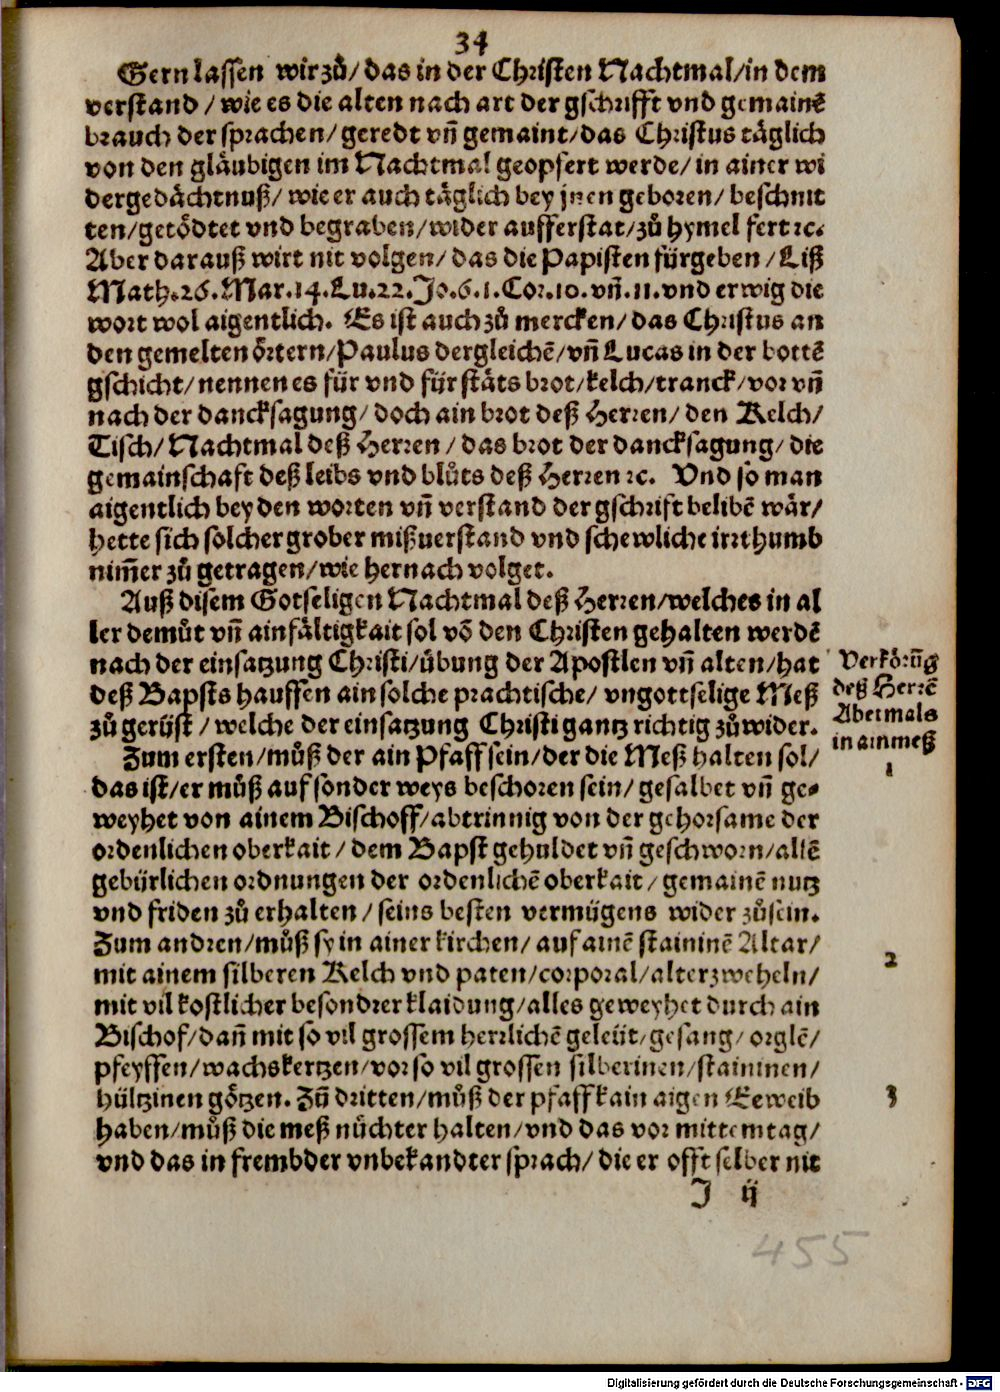 34
Gern lassen wir zů/ das in der Christen Nachtmal/in dem
verstand / wie es die alten nach art der gschrifft vnd gemainē
brauch der sprachen/ geredt vn̄ gemaint/das Christus täglich
von den gläubigen im Nachtmal geopfert werde/ in ainer wi
dergedächtnuß/ wie er auch täglich bey jnen geboren/ beschnit
ten/getödtet vnd begraben/wider aufferstat/zů hymel fert ꝛc.
Aber darauß wirt nit volgen/ das die Papisten fürgeben / Liß
Math.26.Mar.14.Lu.22.Jo.6.1.Cor.10.vn̄.11.vnd erwig die
wort wol aigentlich. Es ist auch zů mercken/ das Christus an
den gemelten örtern/Paulus dergleichē/vn̄ Lucas in der bottē
gschicht/ nennen es für vnd für stäts brot/kelch/tranck/vor vn̄
nach der dancksagung/ doch ain brot deß Herren/ den Kelch/
Tisch/ Nachtmal deß Herren / das brot der dancksagung/ die
gemainschaft deß leibs vnd blůts deß Herren ꝛc. Vnd so man
aigentlich bey den worten vn̄ verstand der gschrift belibē wär/
hette sich solcher grober mißuerstand vnd schewliche irrthumb
nim̄er zů getragen/wie hernach volget.
Auß disem Gotseligen Nachtmal deß Herren/welches in al
ler demůt vn̄ ainfältigkait sol vō den Christen gehalten werdē
nach der einsatzung Christi/übung der Apostlen vn̄ alten/hat
deß Bapsts hauffen ain solche prachtische/ vngottselige Meß
zů gerüst / welche der einsatzung Christi gantz richtig zůwider.
Verkörūg
deß Herrē
Abetmals
in ain meß
Zum ersten/můß der ain Pfaff sein/der die Meß halten sol/
1
das ist/er můß auf sonder weys beschoren sein/ gesalbet vn̄ ge-
weyhet von ainem Bischoff/abtrinnig von der gehorsame der
ordenlichen oberkait / dem Bapst gehuldet vn̄ geschworn/allē
gebürlichen ordnungen der ordenlichē oberkait/ gemainē nutz
vnd friden zů erhalten / seins besten vermügens wider zůsein.
Zum andren/můß sy in ainer kirchen/ auf ainē staininē Altar/
2
mit ainem silberen Kelch vnd paten/corporal/alterzweheln/
mit vil kostlicher besondrer klaidung/alles geweyhet durch ain
Bischof/dan̄ mit so vil grossem herrlichē geleüt/gesang/ orglē/
pfeyffen/wachskertzen/vor so vil grossen silberinen/staininen/
hültzinen götzen. Zū dritten/můß der pfaff kain aigen Eeweib
3
haben/můß die meß nüchter halten/vnd das vor mittemtag/
vnd das in frembder vnbekandter sprach/ die er offt selber nit
J ij
455
Digitalisierung gefördert durch die Deutsche Forschungsgemeinschaft - DFG